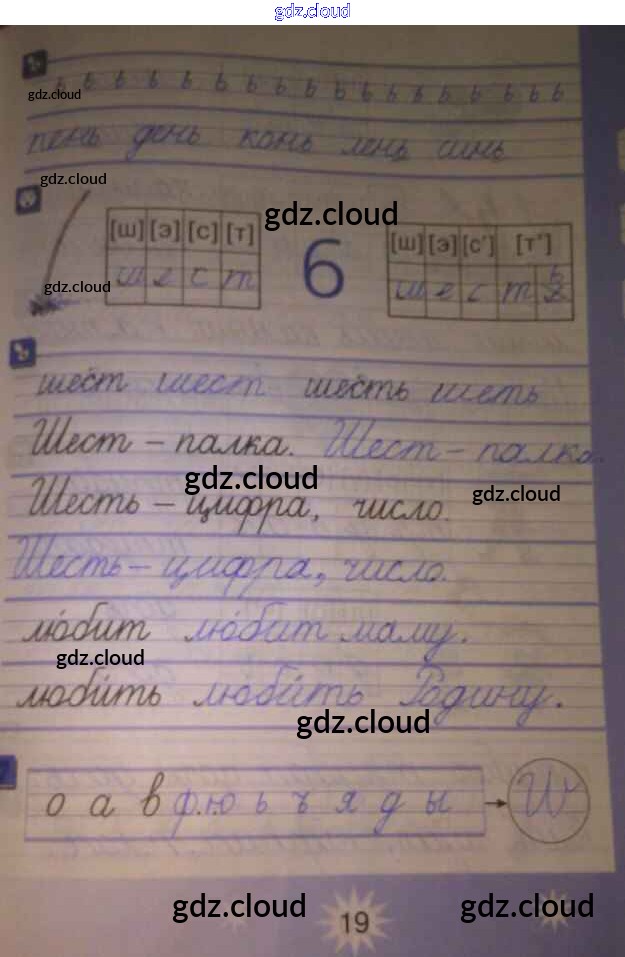 gdz.cloud
ь ь ь ь ь ь ь ь ь ь ь ь ь ь ь ь ь ь
gdz.cloud
пень день конь лень синь
gdz.cloud
gdz.cloud
[ш] [э] [с] [т]
ш е с т
6
[ш] [э] [с'] [т']
ш е с т ь
gdz.cloud
шест шест шесть шесть
Шест – палка. Шест – палка.
gdz.cloud
gdz.cloud
Шесть – цифра, число.
Шесть – цифра, число.
люби́т люби́т маму.
gdz.cloud
люби́ть люби́ть Родину.
gdz.cloud
о а в ф ю ь ъ я д ы
gdz.cloud
19
gdz.cloud